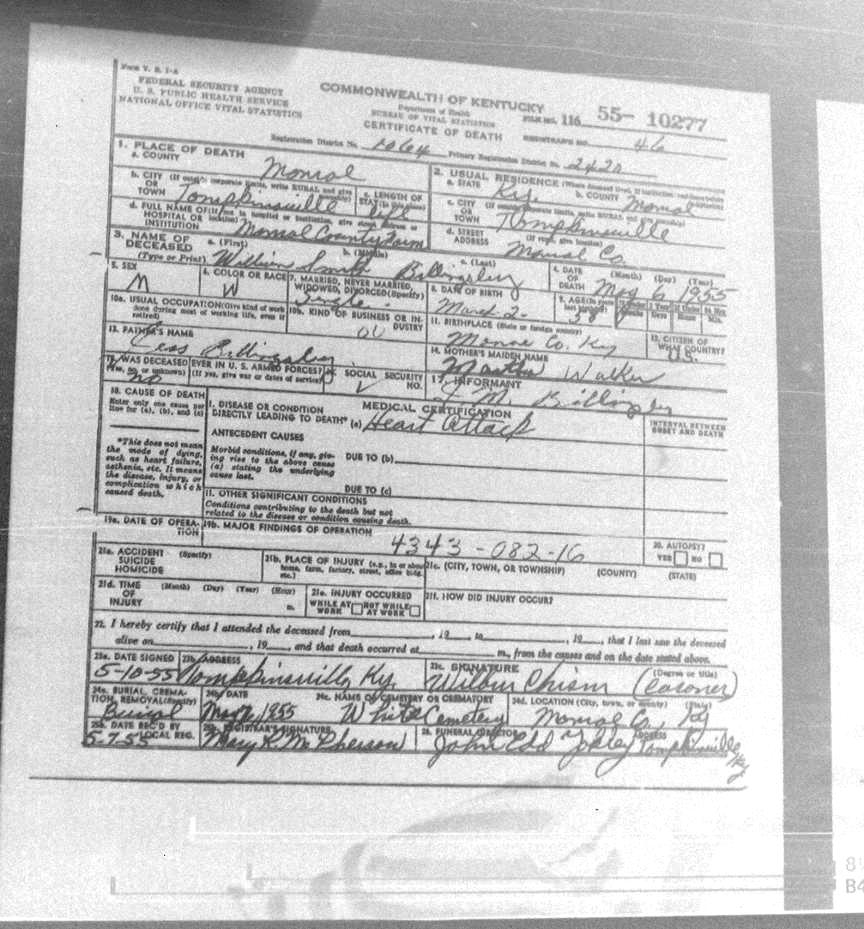 Form V. S. 1-A
FEDERAL SECURITY AGENCY
U. S. PUBLIC HEALTH SERVICE
NATIONAL OFFICE VITAL STATISTICS
COMMONWEALTH OF KENTUCKY
Department of Health
BUREAU OF VITAL STATISTICS
CERTIFICATE OF DEATH
FILE NO. 116 55- 10277
REGISTRARS NO. 46
Registration District No. Primary Registration District No. 2420
1. PLACE OF DEATH
a. COUNTY Monroe
b. CITY OR TOWN Tompkinsville
c. LENGTH OF STAY life
d. FULL NAME OF HOSPITAL OR INSTITUTION Monroe County Farm
2. USUAL RESIDENCE
a. STATE Ky. b. COUNTY Monroe
c. CITY OR TOWN Tompkinsville
d. STREET ADDRESS Monroe Co.
3. NAME OF DECEASED (Type or Print)
a. (First) b. (Middle) c. (Last)
William Smith Billingsley
4. DATE OF DEATH (Month) (Day) (Year)
May 6, 1955
5. SEX M
6. COLOR OR RACE W
7. MARRIED, NEVER MARRIED, WIDOWED, DIVORCED (Specify) Single
8. DATE OF BIRTH March 2-
9. AGE 78
10a. USUAL OCCUPATION (Give kind of work done during most of working life, even if retired)
10b. KIND OF BUSINESS OR INDUSTRY
11. BIRTHPLACE (State or foreign country) Monroe Co. Ky
12. CITIZEN OF WHAT COUNTRY? U.S.
13. FATHER'S NAME
Billingsley
14. MOTHER'S MAIDEN NAME
Martha Walker
15. WAS DECEASED EVER IN U. S. ARMED FORCES?
(Yes, no, or unknown) (If yes, give war or dates of service)
no
16. SOCIAL SECURITY NO.
17. INFORMANT
J. M. Billingsley
18. CAUSE OF DEATH
Enter only one cause per line for (a), (b), and (c)
MEDICAL CERTIFICATION
INTERVAL BETWEEN ONSET AND DEATH
I. DISEASE OR CONDITION
DIRECTLY LEADING TO DEATH* (a) Heart Attack
*This does not mean the mode of dying, such as heart failure, asthenia, etc. It means the disease, injury, or complication which caused death.
ANTECEDENT CAUSES
Morbid conditions, if any, giving rise to the above cause (a) stating the underlying cause last.
DUE TO (b)
DUE TO (c)
II. OTHER SIGNIFICANT CONDITIONS
Conditions contributing to the death but not related to the disease or condition causing death.
19a. DATE OF OPERATION
19b. MAJOR FINDINGS OF OPERATION
4343-082-16
20. AUTOPSY?
YES NO
21a. ACCIDENT SUICIDE HOMICIDE (Specify)
21b. PLACE OF INJURY (e.g., in or about home, farm, factory, street, office bldg. etc.)
21c. (CITY, TOWN, OR TOWNSHIP) (COUNTY) (STATE)
21d. TIME OF INJURY (Month) (Day) (Year) (Hour) m.
21e. INJURY OCCURRED
WHILE AT WORK NOT WHILE AT WORK
21f. HOW DID INJURY OCCUR?
22. I hereby certify that I attended the deceased from , 19 , to , 19 , that I last saw the deceased
alive on , 19 , and that death occurred at m., from the causes and on the date stated above.
23a. DATE SIGNED 5-10-55
23b. ADDRESS Tompkinsville, Ky.
23c. SIGNATURE (Degree or title)
Wilbur Chism (Coroner)
24a. BURIAL, CREMATION, REMOVAL (Specify) Burial
24b. DATE May 7, 1955
24c. NAME OF CEMETERY OR CREMATORY White Cemetery
24d. LOCATION (City, town, or county) (State) Monroe Co. Ky
25a. DATE REC'D BY LOCAL REG. 5-7-55
25b. REGISTRAR'S SIGNATURE Mary K. McPherson
26. FUNERAL DIRECTOR ADDRESS
John Edd Yokley Tompkinsville, Ky
B4